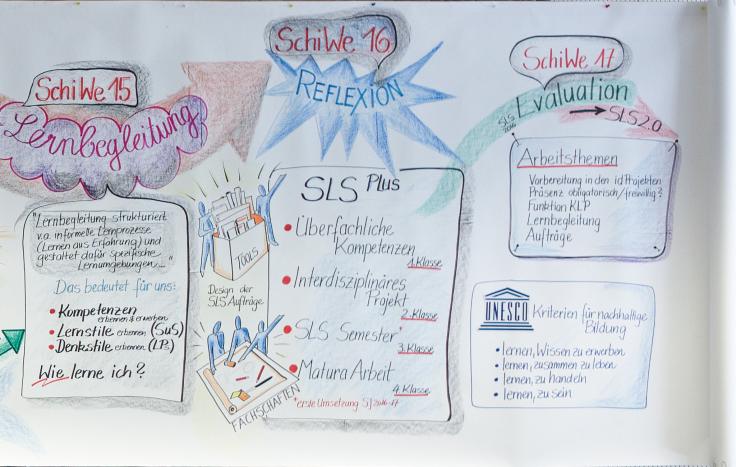 SchiWe 15
Lernbegleitung
"Lernbegleitung strukturiert
v.a. informelle Lernprozesse
(Lernen aus Erfahrung) und
gestaltet dafür spezifische
Lernumgebungen..."
Das bedeutet für uns:
• Kompetenzen
erkennen & erwerben
• Lernstile erkennen (SuS)
• Denkstile erkennen (LPs)
Wie lerne ich?
SchiWe 16
REFLEXION
TOOLS
Design der
SLS Aufträge
FACHSCHAFTEN
SLS Plus
• Überfachliche
Kompetenzen
1. Klasse
• Interdisziplinäres
Projekt
2. Klasse
• SLS Semester*
3. Klasse
• Matura Arbeit
4. Klasse
*erste Umsetzung SJ 2016-17
SchiWe 17
SLS
Evaluation
→ SLS 2.0
Arbeitsthemen
Vorbereitung in den id Projekten
Präsenz obligatorisch/freiwillig?
Funktion KLP
Lernbegleitung
Aufträge
UNESCO
Kriterien für nachhaltige
Bildung
• lernen, Wissen zu erwerben
• lernen, zusammen zu leben
• lernen, zu handeln
• lernen, zu sein